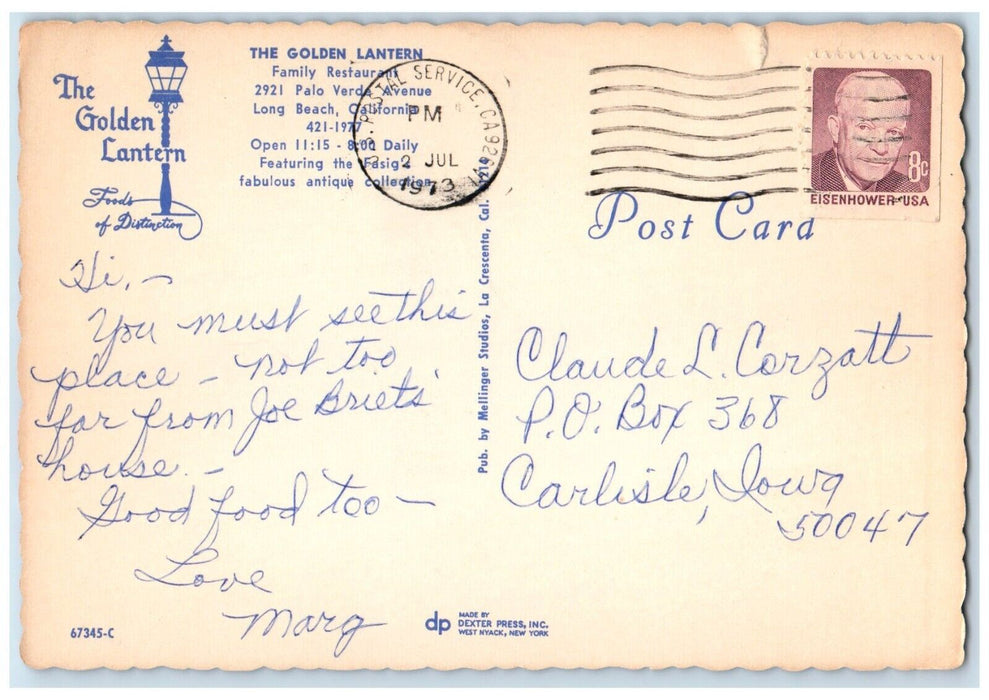 The
Golden
Lantern
Foods
of Distinction
THE GOLDEN LANTERN
Family Restaurant
2921 Palo Verde Avenue
Long Beach, California
421-1977
Open 11:15 - 8:00 Daily
Featuring the Fasig's
fabulous antique collection
POSTAL SERVICE, CA 926
PM
2 JUL
1973
8c
EISENHOWER·USA
Post Card
Hi,-
You must see this
place - not too
far from Joe Briet's
house. -
Good food too -
Love
Marg
Pub. by Mellinger Studios, La Crescenta, Cal.
Claude L. Corzatt
P.O. Box 368
Carlisle, Iowa
50047
67345-C
dp
MADE BY
DEXTER PRESS, INC.
WEST NYACK, NEW YORK